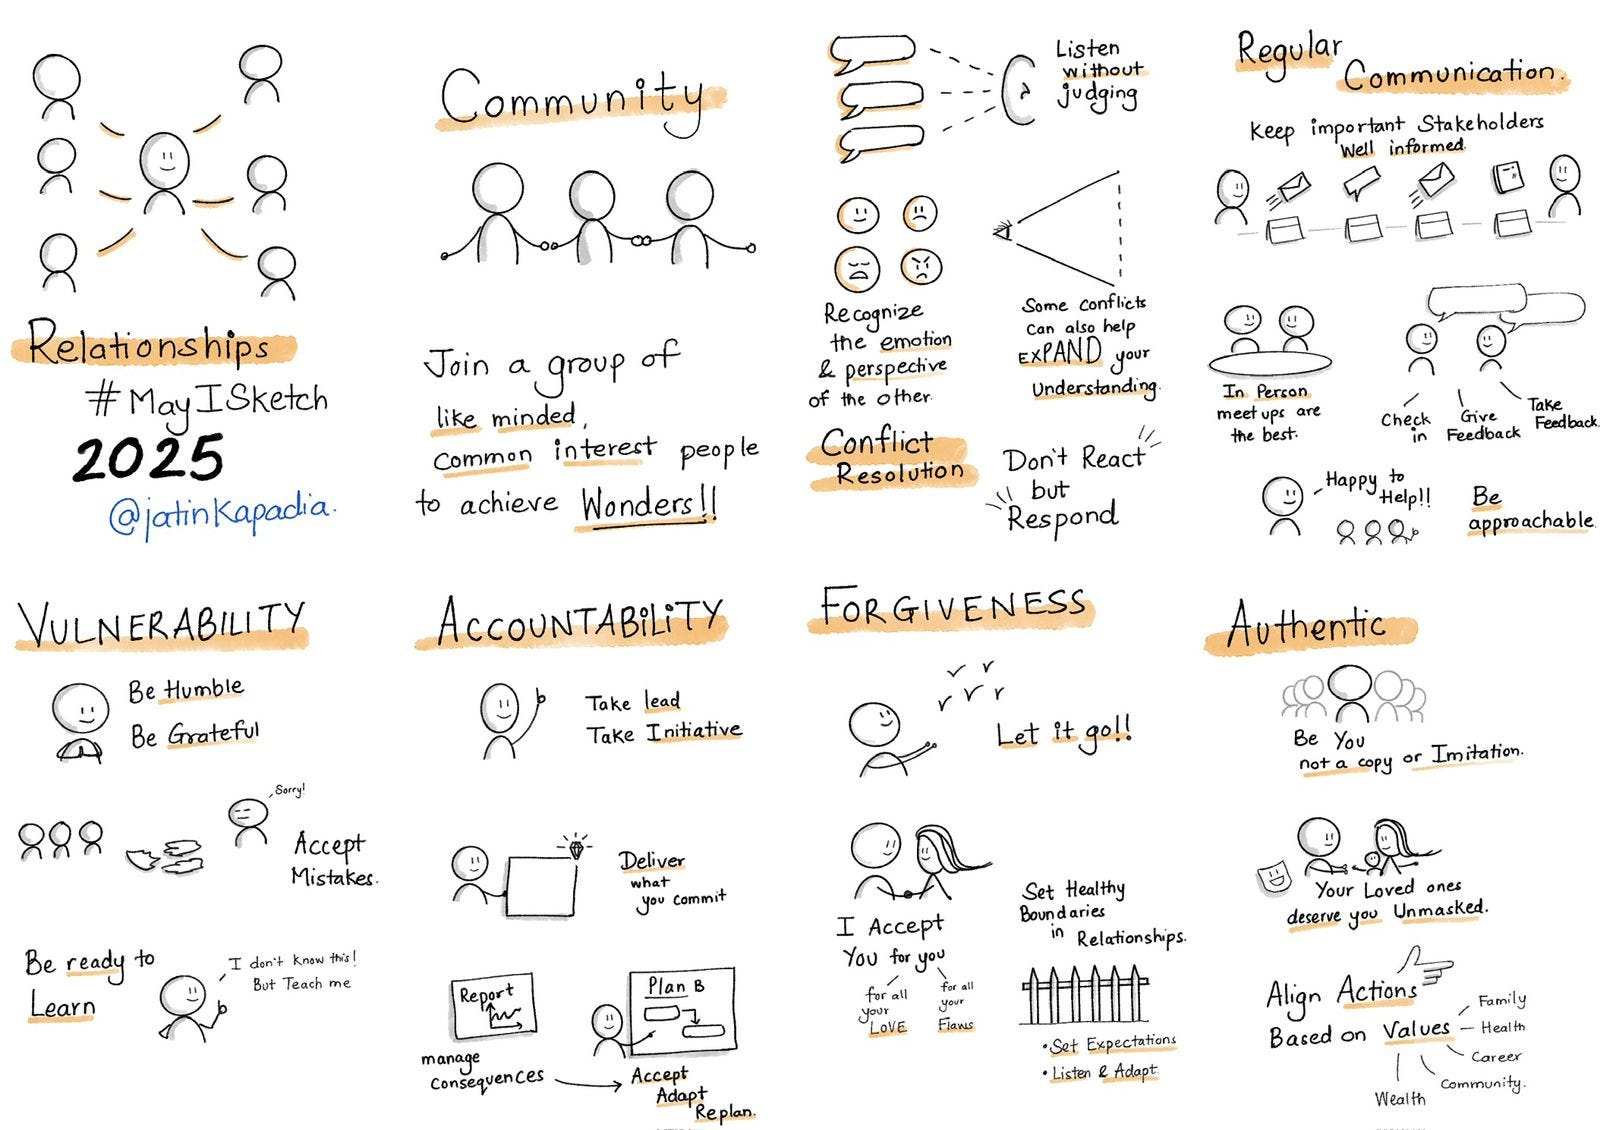 Relationships
#MayISketch
2025
@jatinkapadia.
Community
Join a group of
like minded,
common interest people
to achieve Wonders!!
Listen
without
judging
Recognize
the emotion
& perspective
of the other.
Some conflicts
can also help
EXPAND your
Understanding.
Conflict
Resolution
Don't React
but
Respond
Regular
Communication.
Keep important Stakeholders
Well informed.
In Person
meet ups are
the best.
Check
in
Give
Feedback
Take
Feedback.
Happy to
Help!!
Be
approachable.
VULNERABILITY
Be Humble
Be Grateful
Sorry!
Accept
Mistakes.
Be ready to
Learn
I don't know this!
But Teach me
ACCOUNTABILITY
Take lead
Take Initiative
Deliver
what
you commit
Report
Plan B
manage
consequences
Accept
Adapt
Replan.
FORGIVENESS
Let it go!!
I Accept
You for you
for all
your
LOVE
for all
your
Flaws
Set Healthy
Boundaries
in
Relationships.
• Set Expectations
• Listen & Adapt
Authentic
Be You
not a copy or Imitation.
Your Loved ones
deserve you Unmasked.
Align Actions
Based on Values
Family
Health
Career
Community.
Wealth